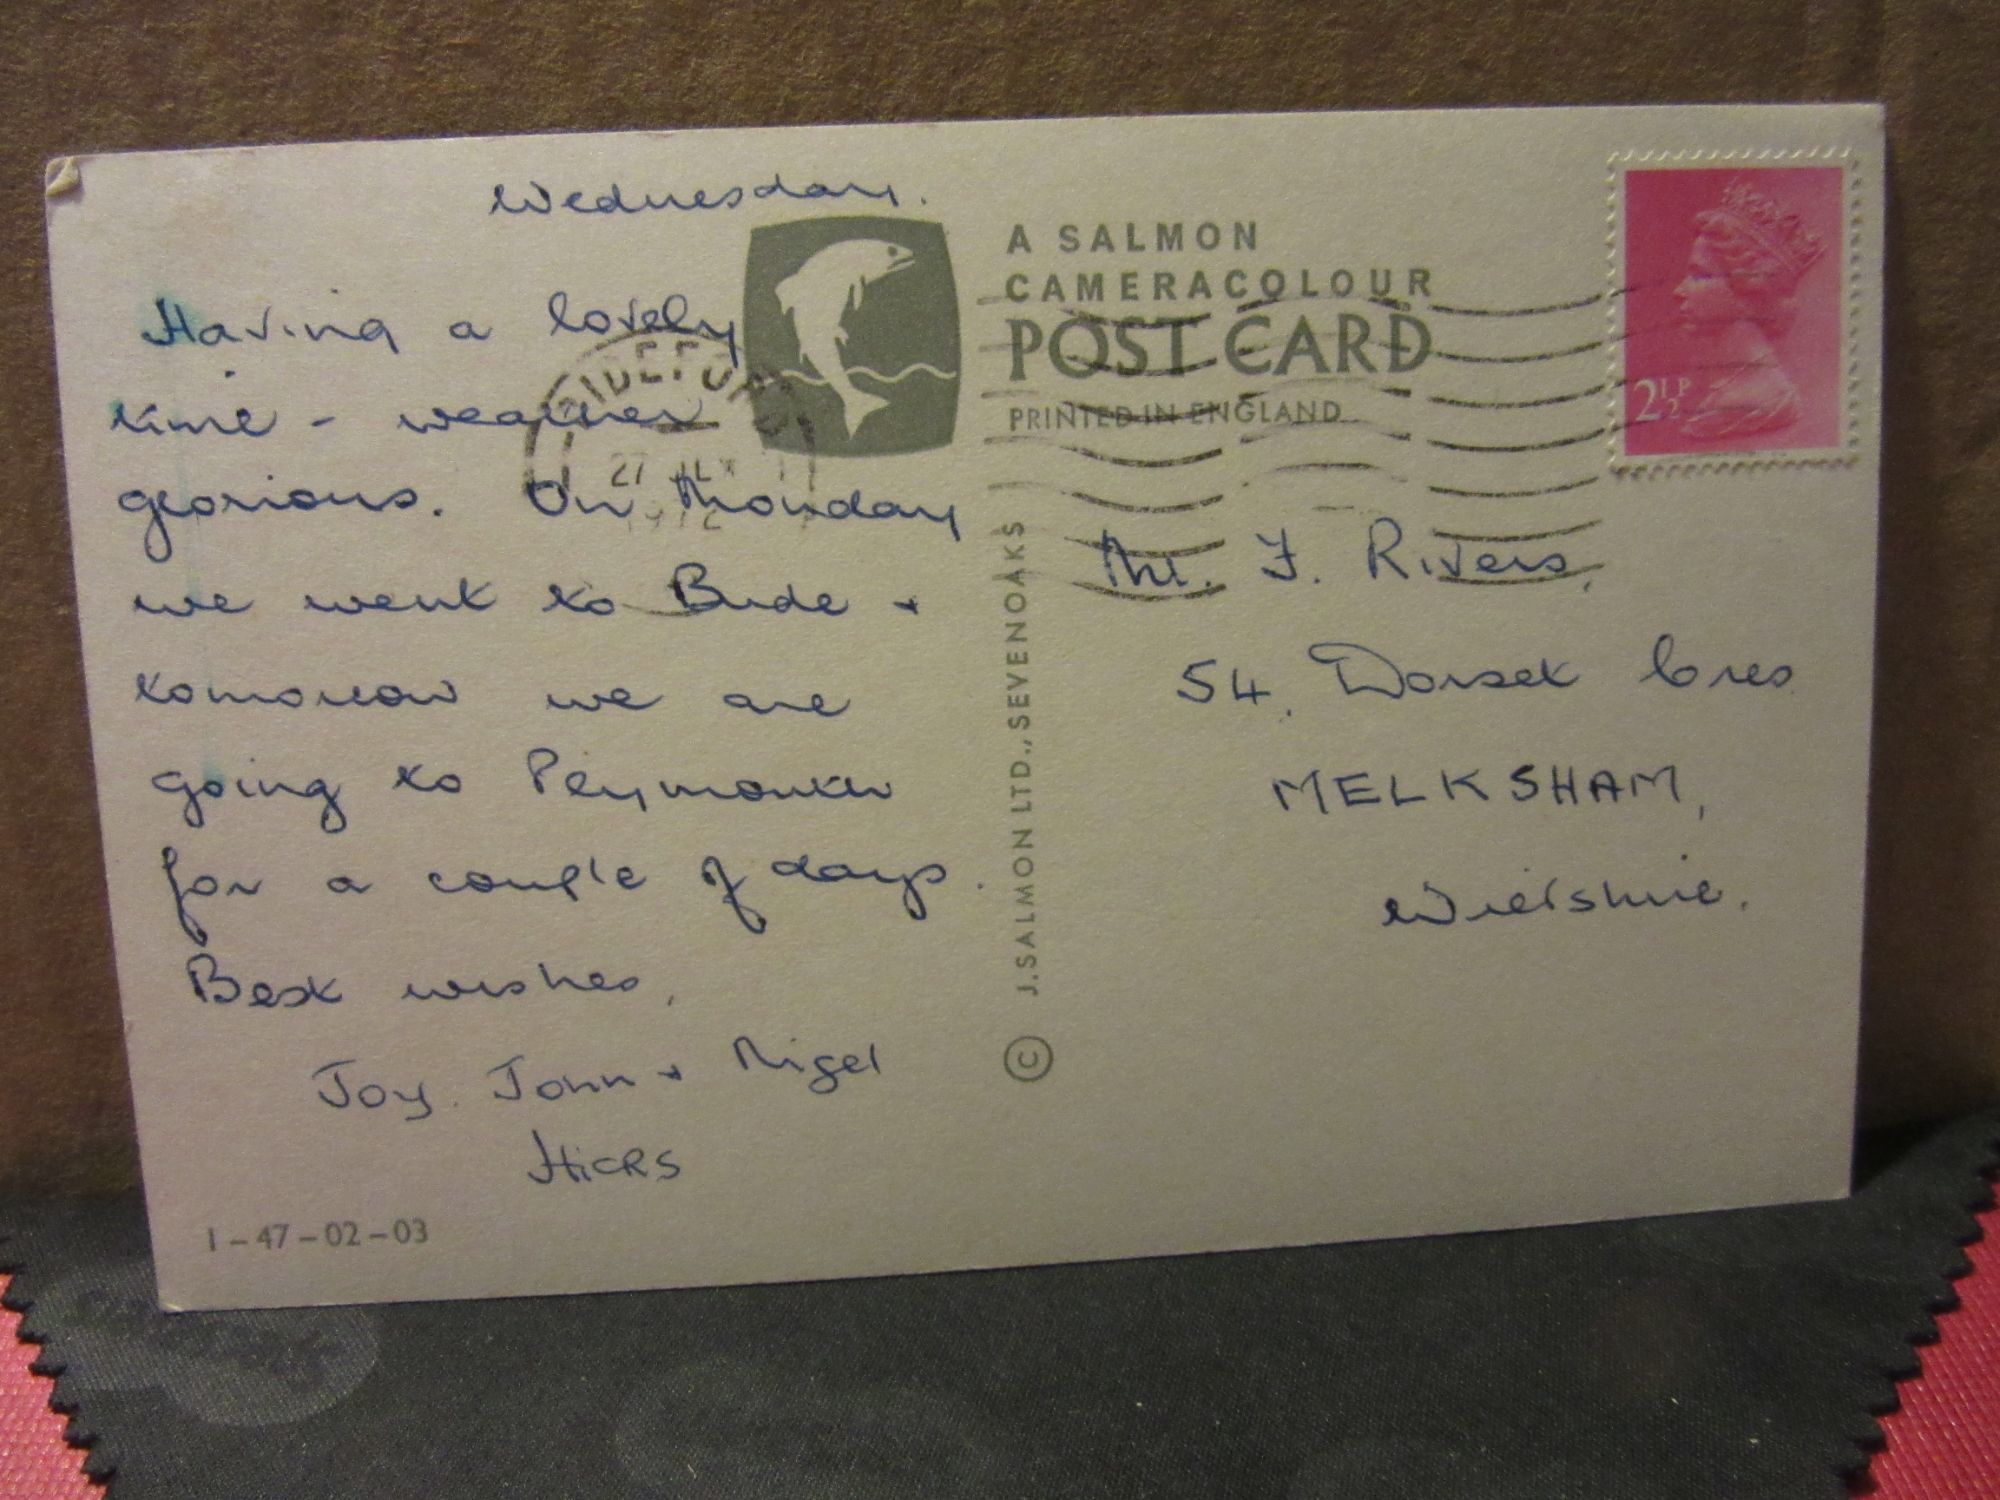 Wednesday.
Having a lovely
time - weather
glorious. On Monday
we went to Bude +
tomorrow we are
going to Plymouth
for a couple of days.
Best wishes,
Joy. John + Nigel
Hicks
1-47-02-03
BIDEFORD
27 JLY
1972
A SALMON
CAMERACOLOUR
POST CARD
PRINTED IN ENGLAND
© J. SALMON LTD., SEVENOAKS
2½P
Mr. F. Rivers,
54, Dorset Cres
MELKSHAM,
Wiltshire.